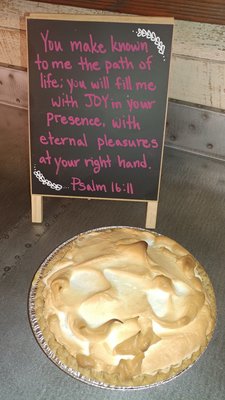 You make known
to me the path of
life; you will fill me
with JOY in your
presence, with
eternal pleasures
at your right hand.
Psalm 16:11